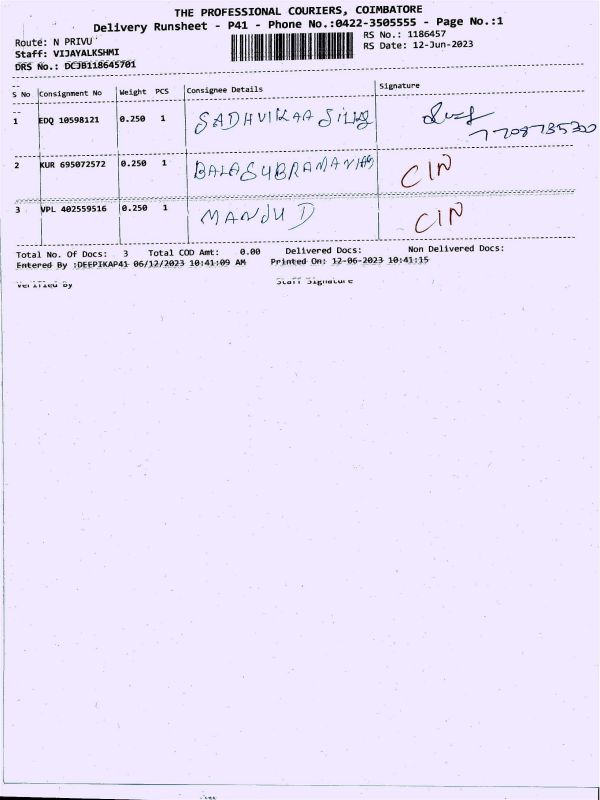 THE PROFESSIONAL COURIERS, COIMBATORE
Delivery Runsheet - P41 - Phone No.:0422-3505555 - Page No.:1
Route: N PRIVU
RS No.: 1186457
Staff: VIJAYALKSHMI
RS Date: 12-Jun-2023
DRS No.: DCJB118645701
S No Consignment No Weight PCS Consignee Details Signature
1 EDQ 10598121 0.250 1 SADHVIKAA SILKS
2 KUR 695072572 0.250 1 BALASUBRAMANIAN CIN
3 VPL 402559516 0.250 1 MANJU D CIN
Total No. Of Docs: 3 Total COD Amt: 0.00 Delivered Docs: Non Delivered Docs:
Entered By :DEEPIKAP41 06/12/2023 10:41:09 AM Printed On: 12-06-2023 10:41:15
Verified By Staff Signature